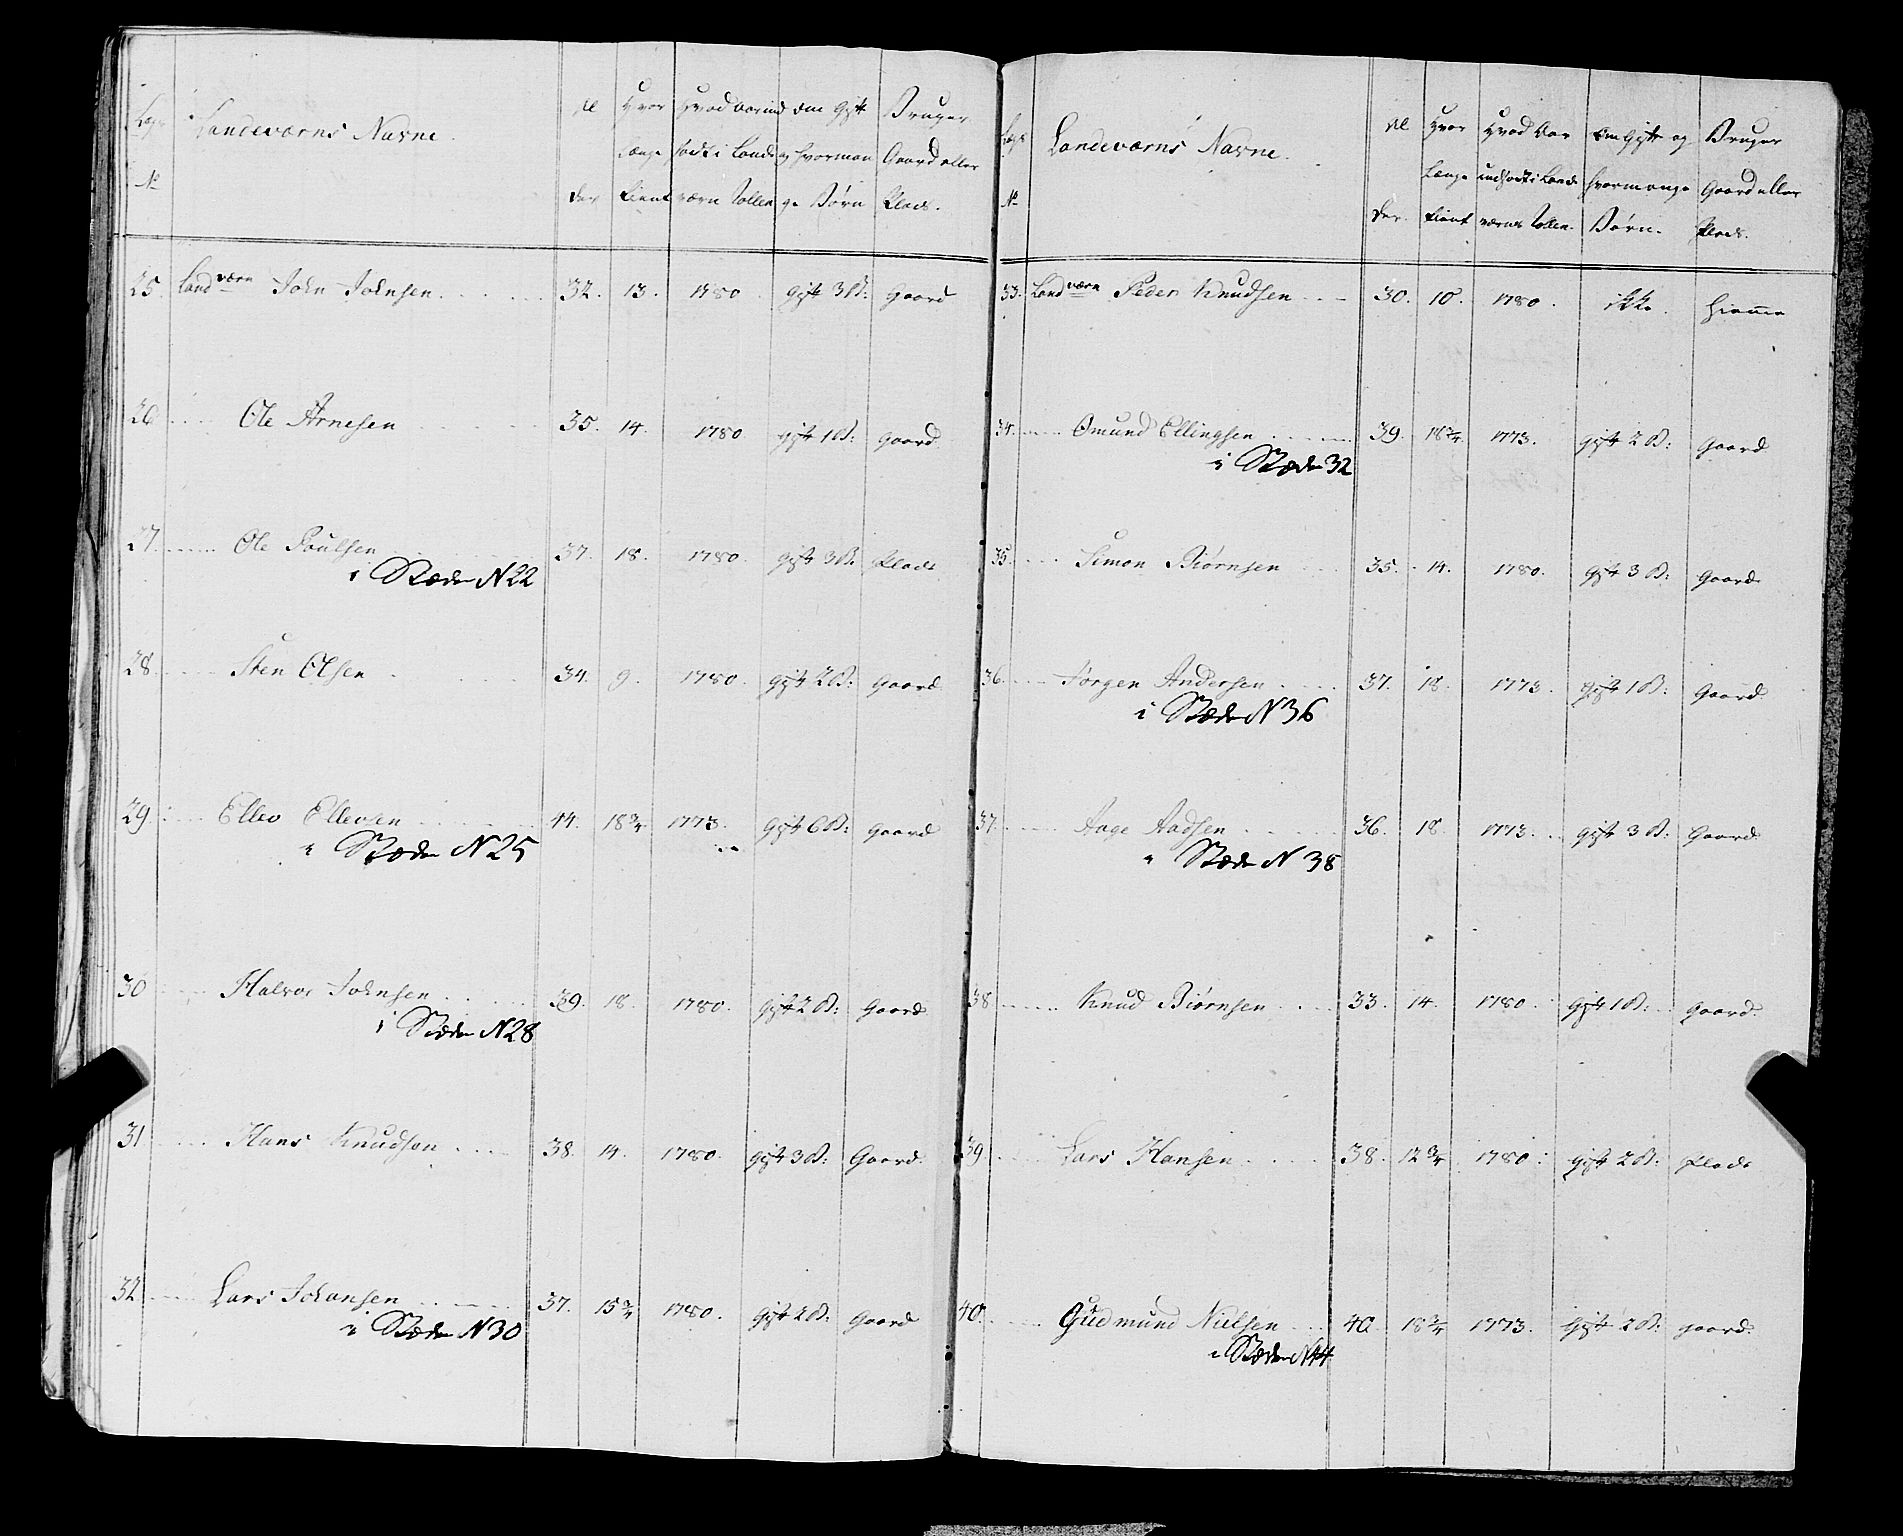 Lægs Landeværns Navne. Al Hvor Hvad Aar ind om Gift Bruger
Længe født i Lande og hvorman Gaard eller
No der tient værn Rollen ge Børn Plads.
25. Landværn John Johnsen. 32. 13. 1780. gift 3 B: gaard
26 Ole Arnesen 35. 14. 1780 gift 1 B: gaard
27. Ole Poulsen 37. 18. 1780. gift 3 B: Plads
i Stæden N 22
28. Sten Olsen 34. 9. 1780. gift 2 B: gaard
29. Ellev Ellevsen 44. 18 3/4 1773. gift 6 B: gaard
i Stæden N 25
30 Halvor Johnsen 39. 18. 1780. gift 2 B: gaard
i Stæden N 28
31 Hans Knudsen 38. 14. 1780. gift 3 B: Gaard.
32. Lars Johansen 37. 15 3/4 1780. gift 2 B: gaard
i Stæden N 30
Lægs Landeværns Navne. Al Hvor Hvad Aar Om Gift og Bruger
Længe indført i Lande hvormange Gaard eller
No der. tient værns Rollen. Børn. Plads.
33. Landværn Peder Knudsen 30. 10. 1780. ikke. hiemme
34. Omund Ellingsen 39. 18 3/4 1773. gift 2 B: gaard
i Stæden 32
35. Simon Biørnsen 35. 14. 1780. gift 3 B: gaard
36. Jørgen Andersen 37. 18. 1773. gift 1 B: gaard
i Stæden N 36
37. Aage Aadsen 36. 18. 1773. gift 3 B: gaard
i Stæden N 38
38 Knud Biørnsen 33. 14. 1780. gift 1 B: gaard.
39 Lars Hansen 38. 12 3/4 1780. gift 2 B: Plads
40. Gudmund Nielsen 40. 18 3/4 1773. gift 2 B: gaard.
i Stæden N 44